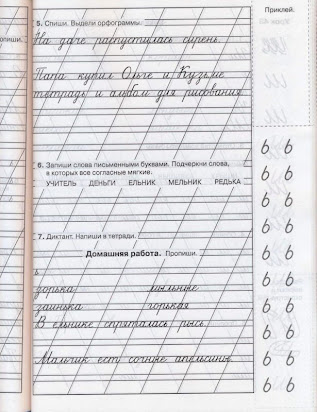 Приклей.
5. Спиши. Выдели орфограммы.
На даче распустилась сирень.
Папа купил Ольге и Кузьме
тетрадь и альбом для рисования.
6. Запиши слова письменными буквами. Подчеркни слова,
в которых все согласные мягкие.
УЧИТЕЛЬ ДЕНЬГИ ЕЛЬНИК МЕЛЬНИК РЕДЬКА
7. Диктант. Напиши в тетради.
Домашняя работа. Пропиши.
ь
зорька мыльные
заинька горькая
В ельнике спряталась рысь.
Мальчик ест сочные апельсины.